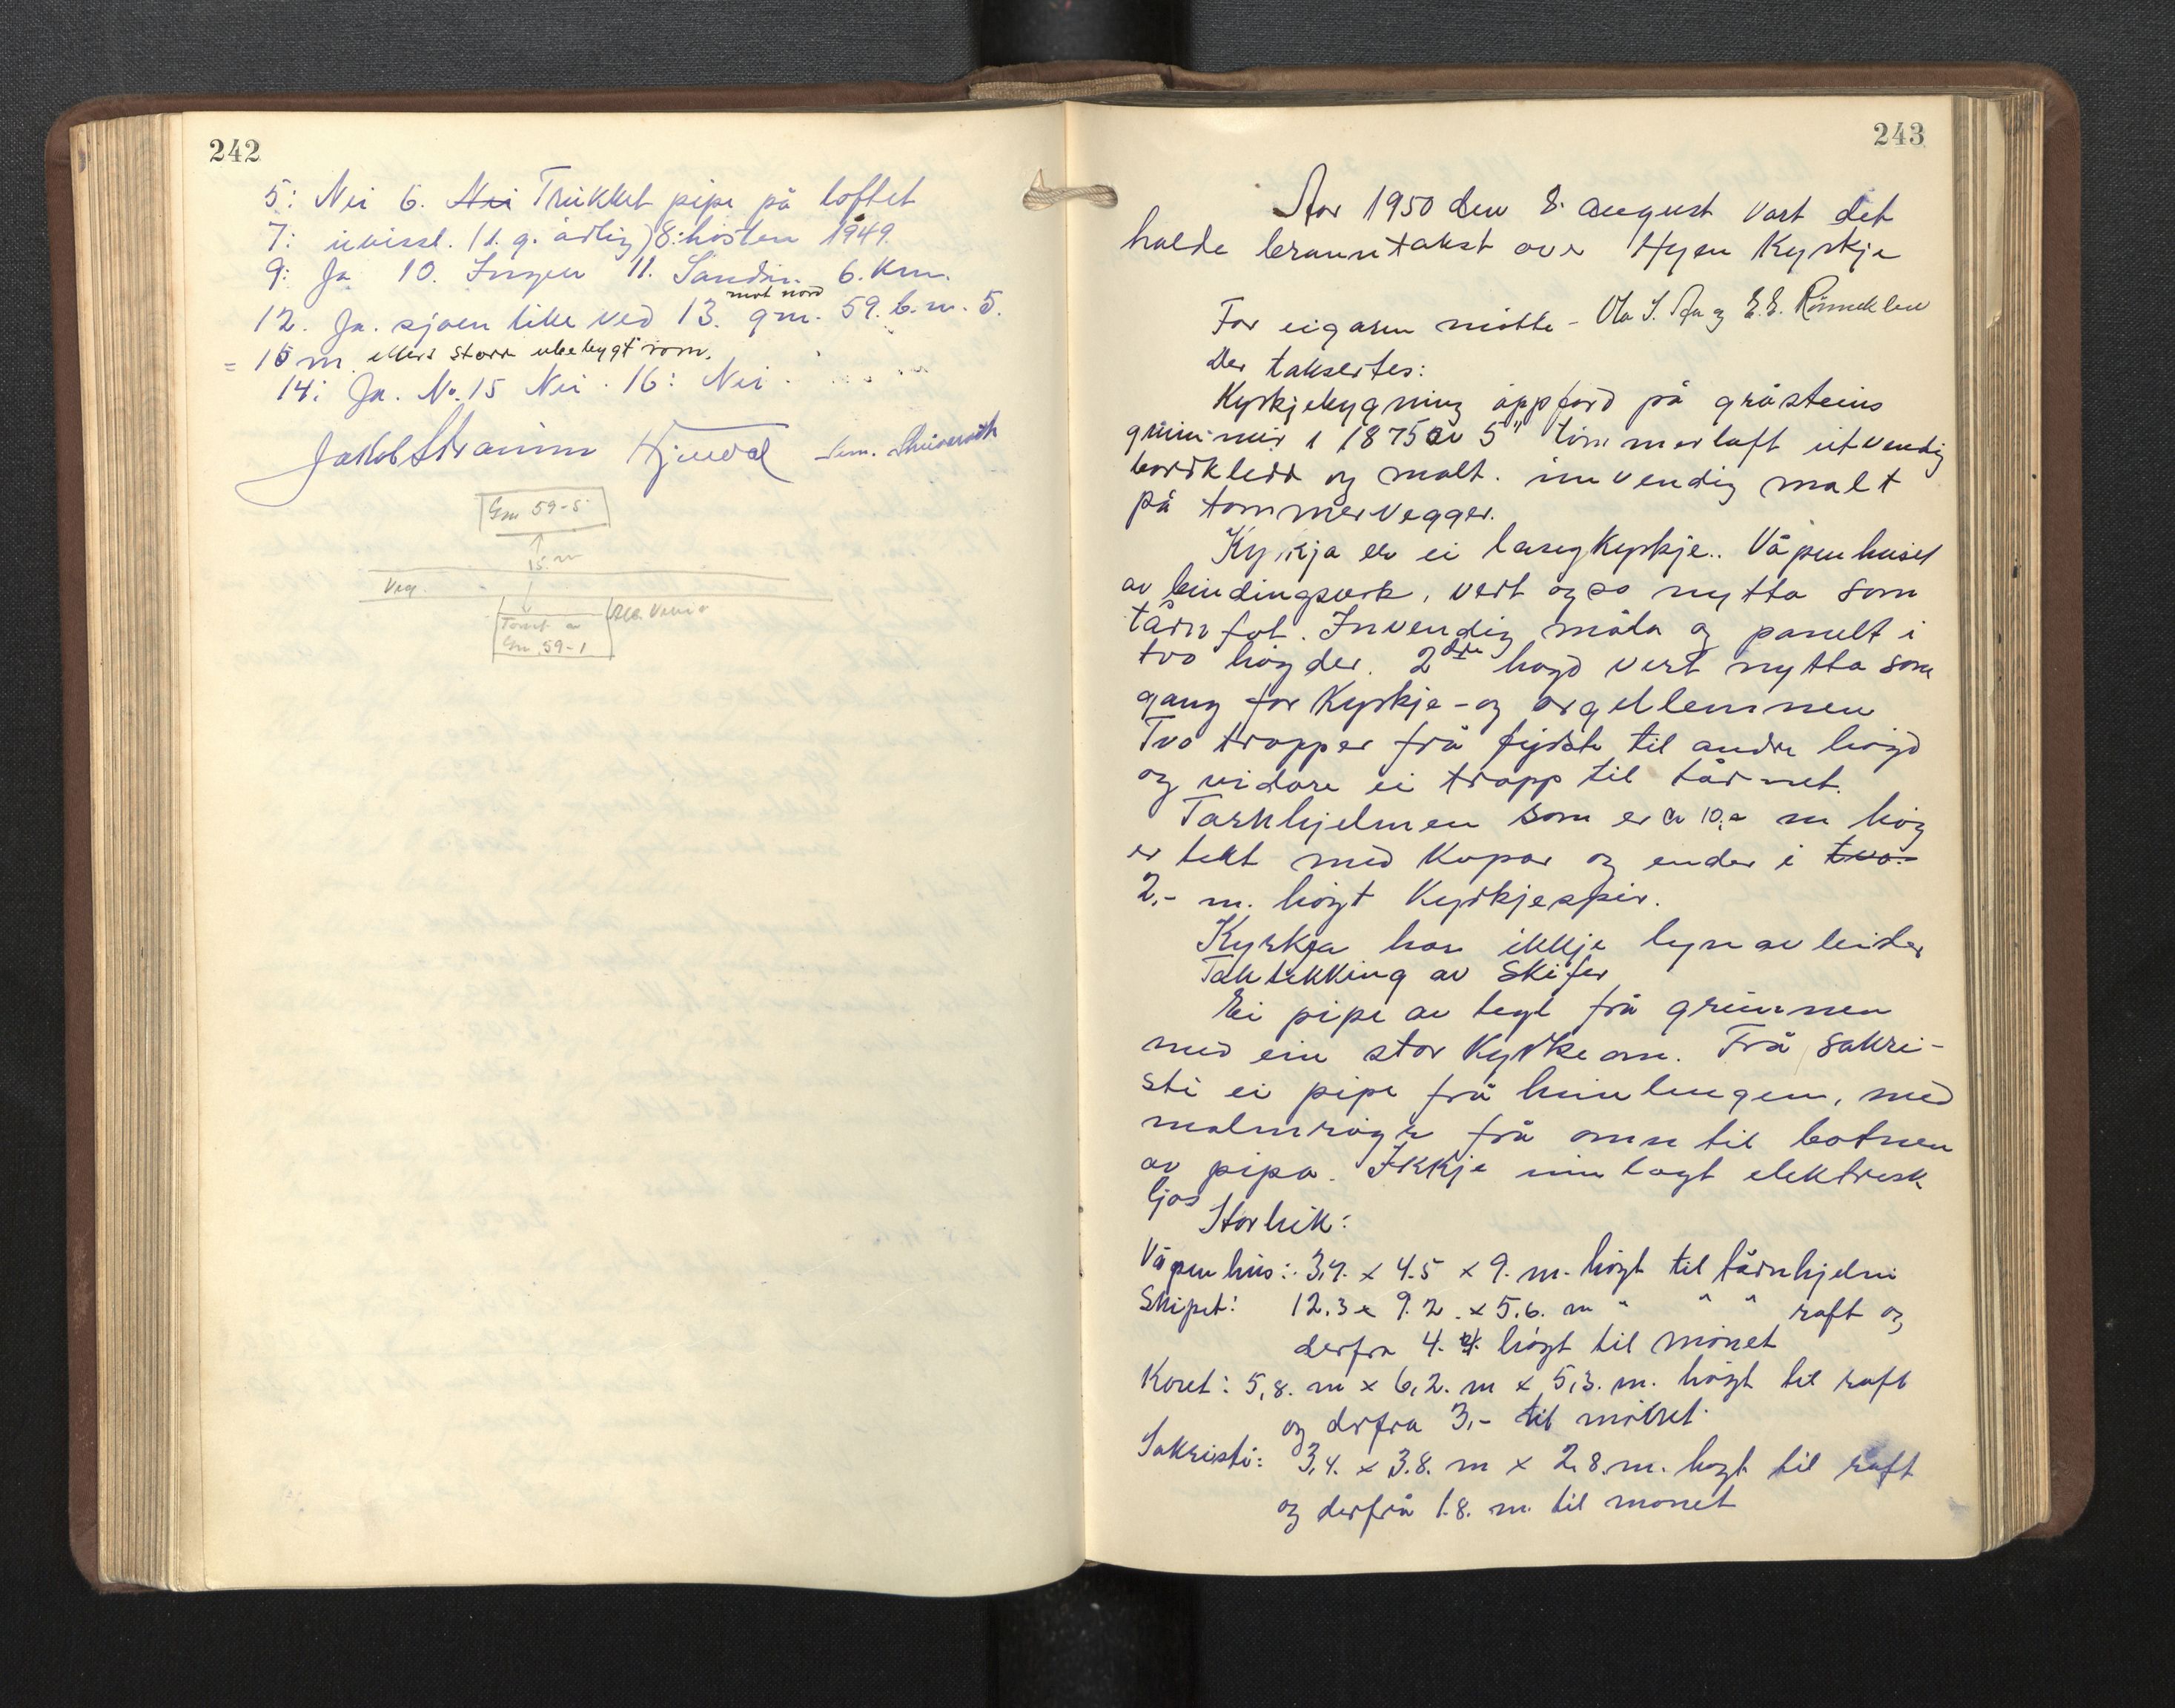 242
5: Nei 6. Nei Trekket pipe på loftet
7: uvisst. (1. g. årlig) 8: hösten 1949.
9: Ja 10. Ingen 11. Sandin. 6. Km.
12. Ja. sjøen like ved 13. mot nord gm. 59. b.n. 5.
= 15 m. ellers större ubebygt rom.
14: Ja. No. 15 Nei. 16: Nei.
Jakob Stranim
Gm 59-5
15 m
Veg.
Tomt av
Gm. 59-1
243
Aar 1950 den 8. august vart det
halde branntakst over Hyen Kyrkje
For eigaren møtte - Ola J. Aa og E.E. Rönneklev
Der taksertes:
Kyrkjebygning oppförd på gråsteins
grunnmur i 1875 av 5" tömmerlaft utvendig
bordkledd og malt. innvendig malt
på tømmervegger.
Kyrkja er ei langkyrkje. Våpenhuset
av bindingsverk, vert ogso nytta som
tårnfot. Invendig måla og panelt i
tvo högder. 2dre högd vert nytta som
gang for Kyrkje- og orgellemmen
Tvo trapper frå fyrste til andre högd
og vidare ei trapp til tårnet.
Tårnhjelmen som er ca 10,- m hög
er tekt med Kopar og ender i tvo.
2,- m. högt Kyrkjespir.
Kyrkja har ikkje lynavleider
Taktekking av Skifer
Ei pipe av tegl frå grunnen
med ein stor Kyrkeomn. Frå sakri-
sti ei pipe frå himlingen, med
malmrøyr frå omn til botnen
av pipa. Ikkje innlagt elektrisk
ljos
Storleik:
Våpenhus: 3,4. x 4.5 x 9. m. högt til tårnhjelm
Skipet: 12.3 x 9.2. x 5.6. m " " " raft og
derfra 4.4. högt til mönet
Koret: 5,8. m x 6,2. m x 5,3. m. högt til raft
og derfra 3,- til mönet.
Sakristi: 3,4. x 3.8. m x 2.8. m. högt til raft
og derfrå 1.8. m. til mönet